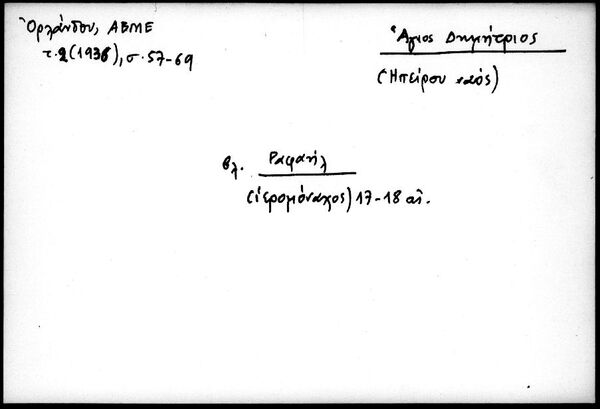 Ὀρλάνδου, ΑΒΜΕ
τ. 2 (1936), σ. 57-69
Ἅγιος Δημήτριος
(Ἠπείρου ναός)
βλ. Ραφαήλ
(ἱερομόναχος) 17-18 αἰ.